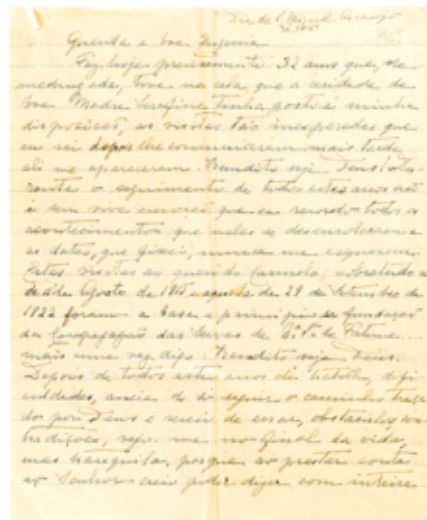 Dia de S. Miguel Arcanjo
Querida e boa Eugenia
Faz hoje precisamente 32 anos que, de
madrugada, tive na cela, que a caridade da
boa Madre Serafina tinha posto á minha
disposição, as visitas tão inesperadas que
eu sei depois lhe communicaram mais tarde
ali me apareceram. Bendito seja Deus!
o seguimento de todos estes anos não
é sem viva emoção que eu recordo todos os
acontecimentos que neles se desenvolveram e
as datas, que fixei, nunca me esquecem
Estas visitas ao querido sobretudo a
de Agosto de e a de 29 de Setembro de
1922 foram a base e principio da fundação
da Congregação das Servas de N. S. de Fatima...
mais uma vez digo: Bendito seja Deus.
Depois de todos estes anos de trabalho, difi
culdades, ancia de só seguir o caminho traça
do por Deus e receio de errar, obstaculos con
tradições, vejo-me no final da vida,
mas tranquila, porque ao prestar contas
ao Senhor creio poder dizer com inteira